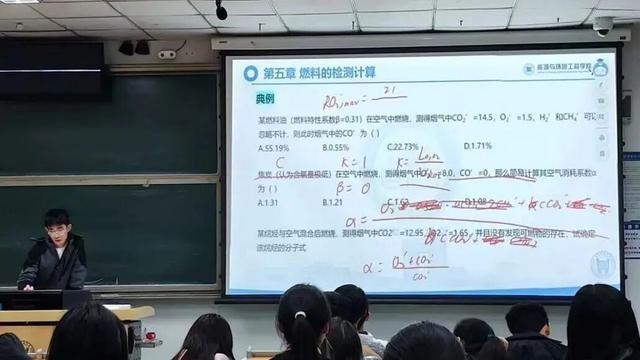 第五章 燃料的检测计算
能源与环境工程学院
典例
RO₂,max = 21
某燃料油（燃料特性系数β=0.31）在空气中燃烧，测得烟气中CO₂′=14.5，O₂′=1.5，H₂′和CH₄′可以
忽略不计，则此时烟气中的CO′为（ ）
A.55.19% B.0.55% C.22.73% D.1.71%
C K=1 K=
焦炭（认为含氧量极低）在空气中燃烧，测得烟气中 8.0，CO′=0，那么简易计算其空气消耗系数α
为（ ） β=0
A.1.31 B.1.21 C.1.63 D.1.08
α=
某烷烃与空气混合后燃烧，测得烟气中CO2′=12.95，O2′=1.65，并且没有发现可燃物的存在，试确定
该烷烃的分子式
α = O₂′+CO₂′
CO₂′